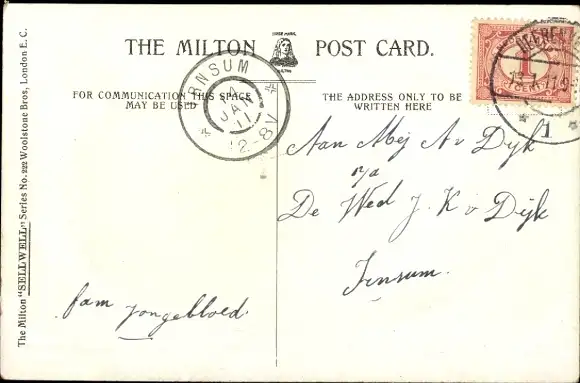 THE MILTON POST CARD.
TRADE MARK.
MILTON
FOR COMMUNICATION THIS SPACE
MAY BE USED
THE ADDRESS ONLY TO BE
WRITTEN HERE
The Milton "SELLWELL" Series No. 222 Woolstone Bros, London E. C.
RNSUM
4
JAN
11
12-8V
1
CENT
1
Aan Mej A v Dyk
p/a
De Wed J. K v Dijk
Irnsum.
fam Jongebloed.